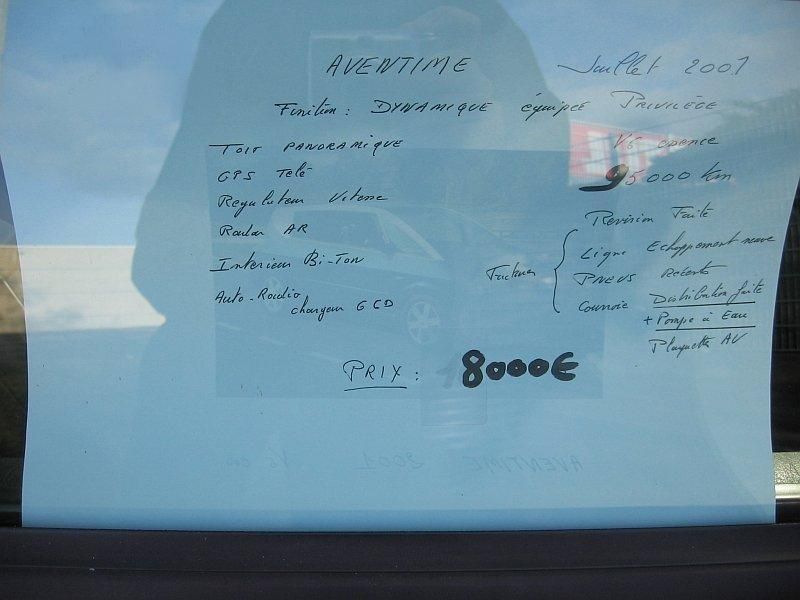 AVENTIME Juillet 2001
Finition : DYNAMIQUE équipée PRIVILÈGE
TOIT PANORAMIQUE V6 essence
GPS Télé 95000 km
Regulateur Vitesse Revision Faite
Radar AR Ligne Echappement neuve
Interieur Bi-Ton Factures PNEUS Récents
Auto-Radio chargeur 6CD Courroie Distribution faite
+ Pompe à Eau
Plaquette AV
PRIX : 8000€
AVENTIME 2001 V6